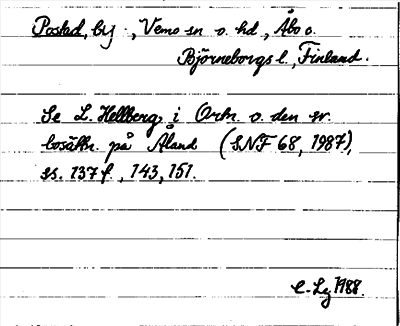 Postad, by., Vemo sn o. hd., Åbo o.
Björneborgs l., Finland.
Se L. Hellberg i Ortn. o. den sv.
bosättn. på Åland (SNF 68, 1987),
ss. 137 f., 143, 151.
1988.